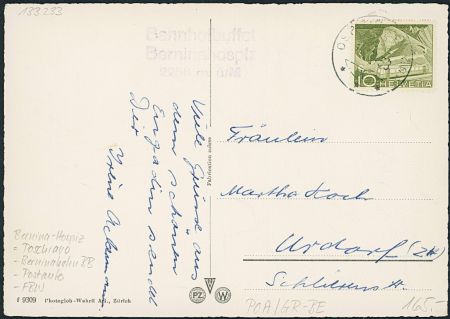 133233
Bahnhofbuffet
Berninahospiz
2256 m ü/M
10
HELVETIA
Viele Grüsse aus
dem schönen
Engadin sendet
Dir
Irène
Fräulein
Martha Koch
Urdorf (ZH)
Schlierenstr.
Bernina-Hospiz
= Poschiavo
- Berninabahn BB
- Postauto
f 9309 Photoglob-Wehrli A.G., Zürich
PZ W
POA/GR-BE
165.-